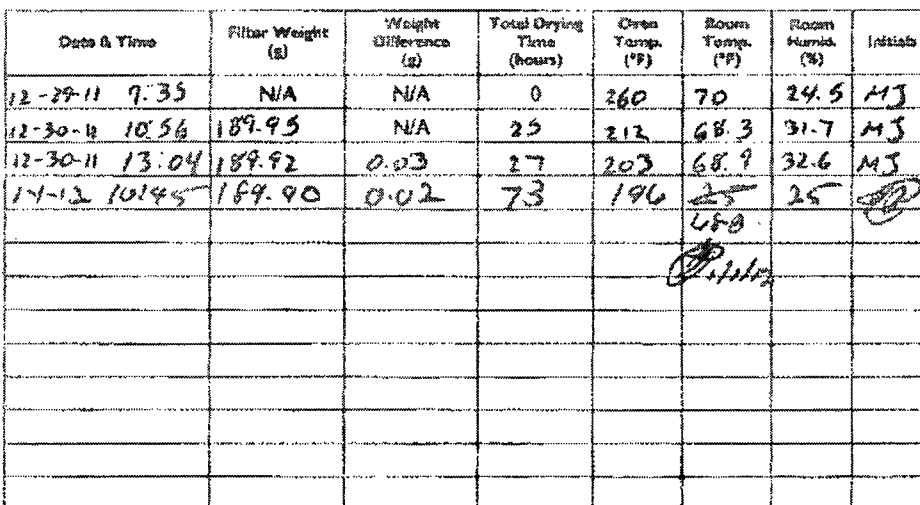 Date & Time Filter Weight (g) Weight Difference (g) Total Drying Time (hours) Oven Temp. (°F) Room Temp. (°F) Room Humid. (%) Initials
12-29-11 9:35 N/A N/A 0 260 70 24.5 MJ
12-30-11 10:56 189.95 N/A 25 212 68.3 31.7 MJ
12-30-11 13:04 189.92 0.03 27 203 68.9 32.6 MJ
1-1-12 10:45 189.90 0.02 73 196 25 25
68.8
1/1/12